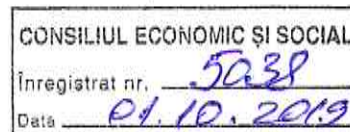 CONSILIUL ECONOMIC ȘI SOCIAL
Înregistrat nr. 5038
Data 01.10.2019